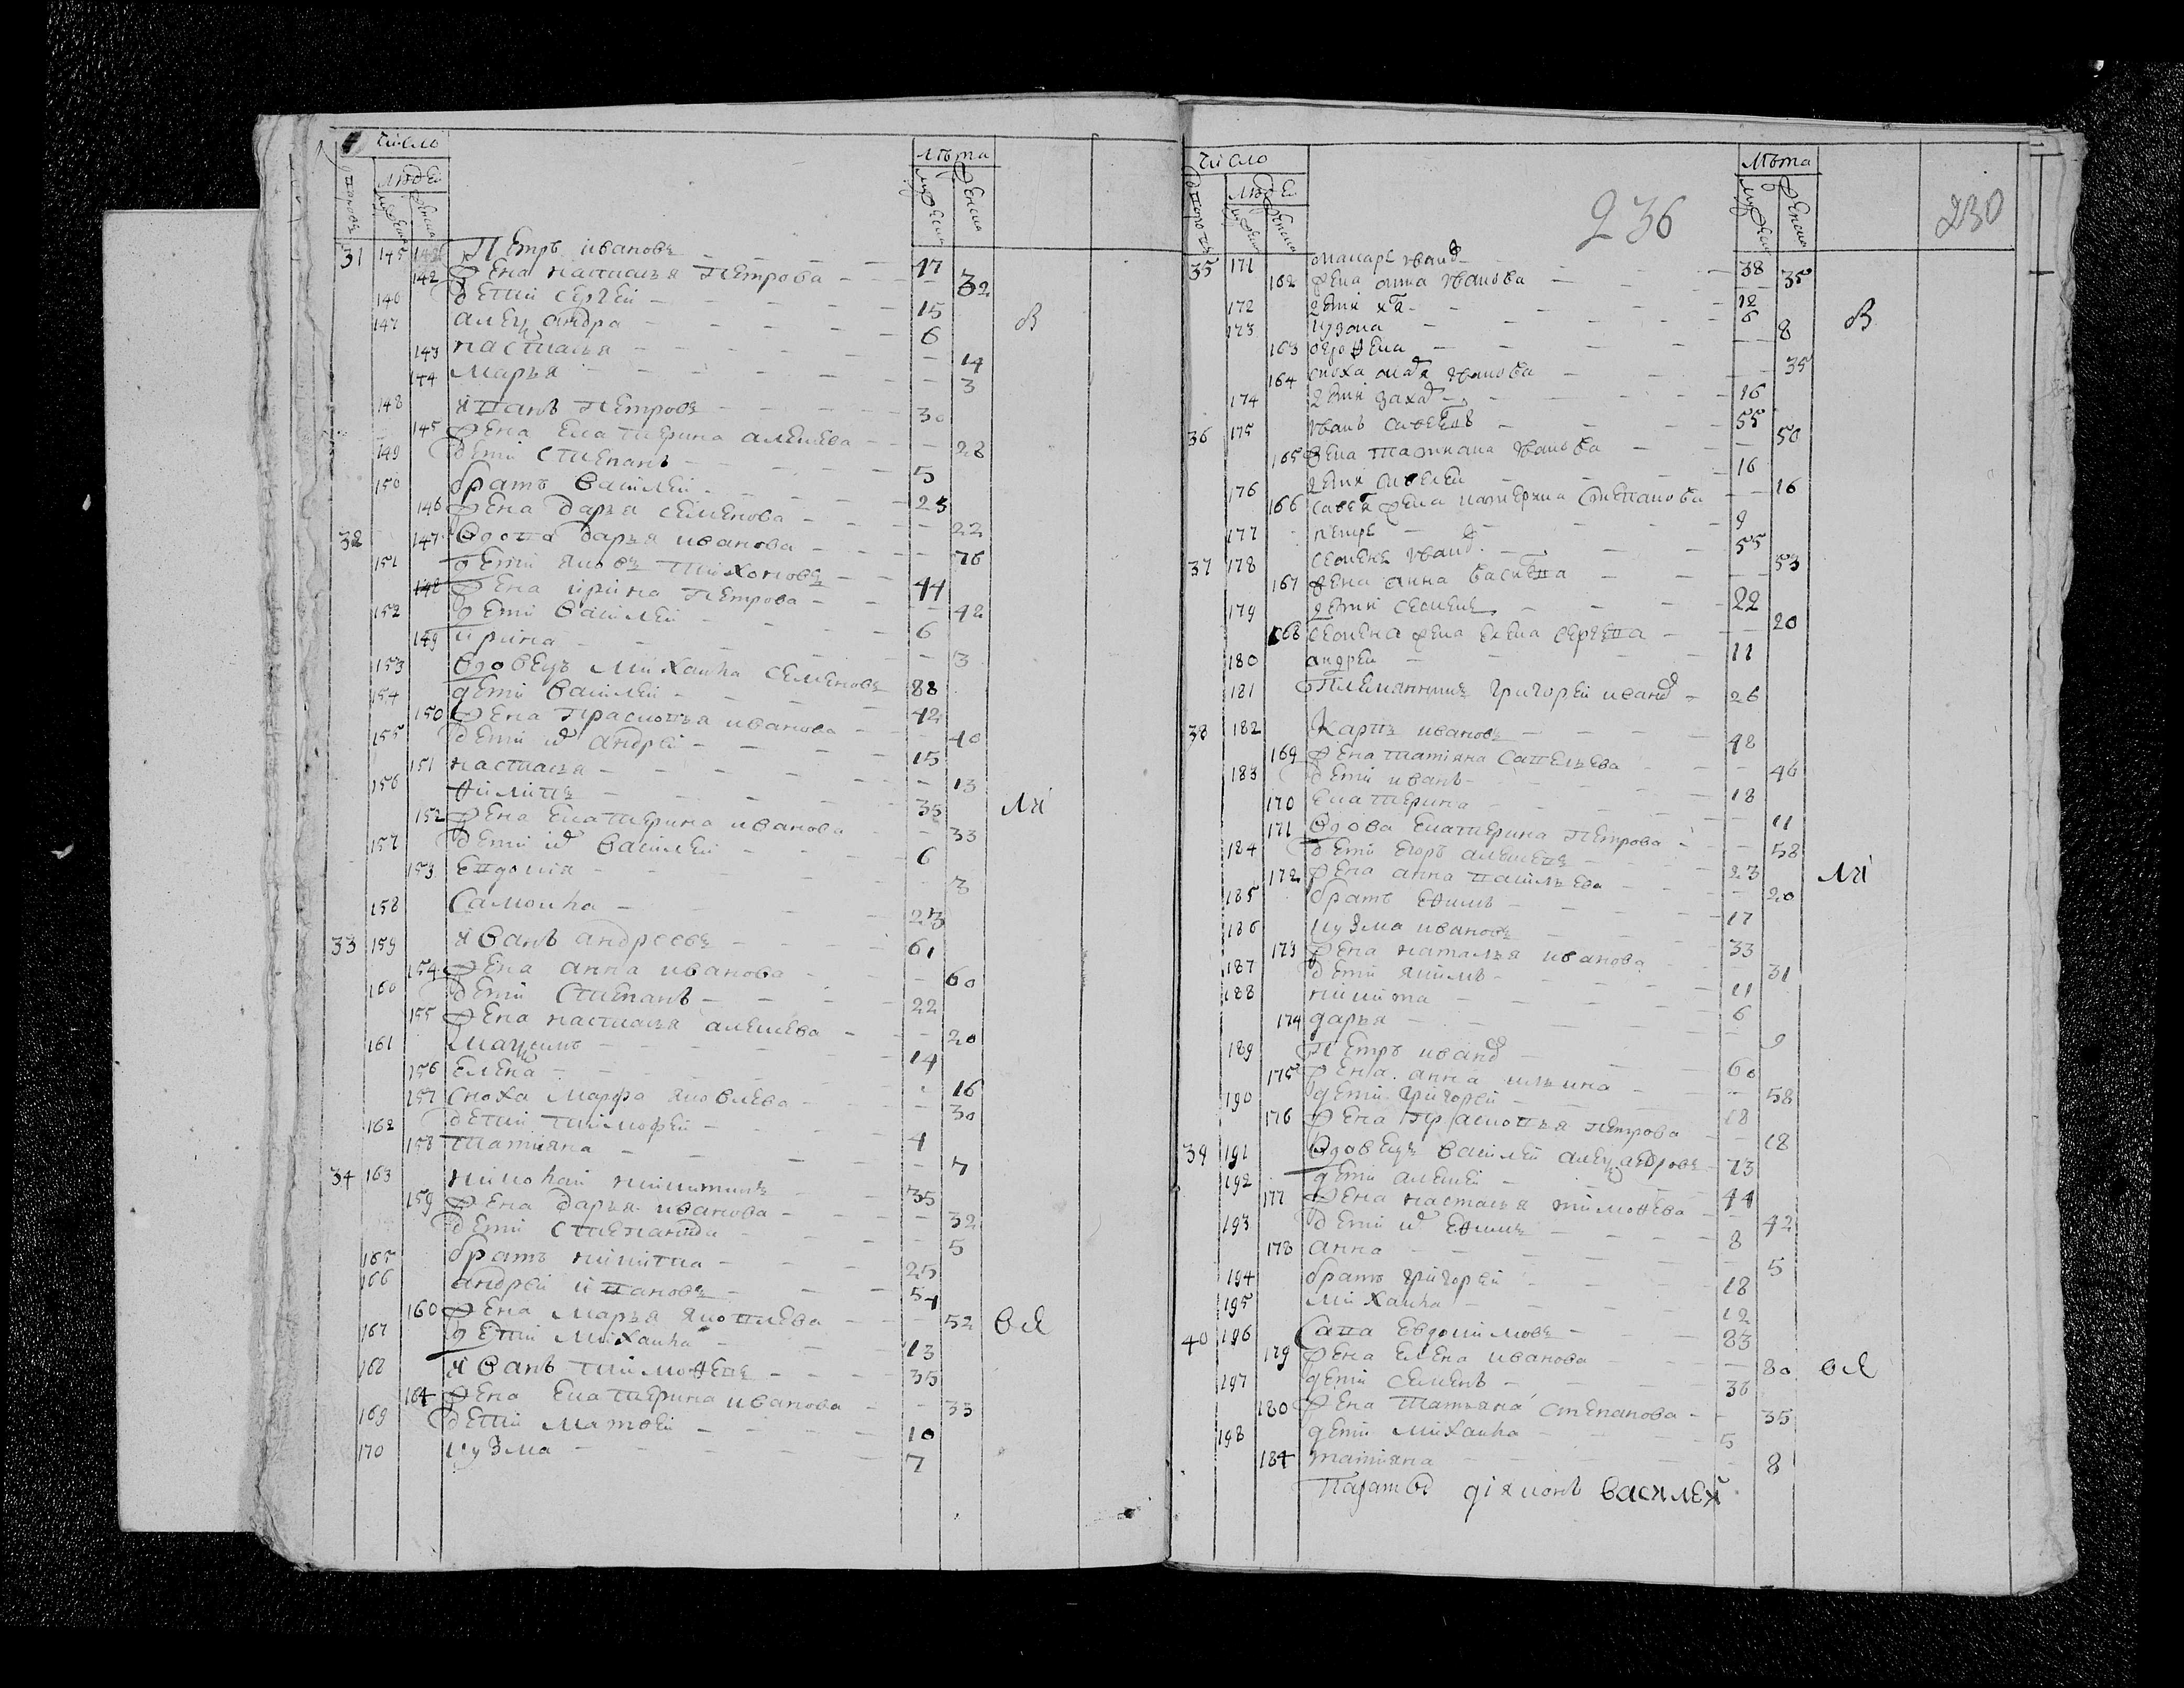 число
людей
лѣта
31 145 Петръ ивановъ 47
142 жена настасья Петрова 32
146 дети сергей 15
147 александра 6 В
143 настасья 14
144 Марья 3
148 иванъ Петровъ 30
145 жена екатерина алексева 28
149 дети степанъ 5
150 братъ василей 25
146 жена дарья семенова 22
32 147 вдова дарья иванова 76
151 дети яковъ тихоновъ 44
148 жена ирина Петрова 42
152 дети василей 6
149 ирина 3
153 вдовецъ михаила семеновъ 88
154 дети василей 42
150 жена Прасковья иванова 40
155 дети андрей 15
151 настасья 13
156 филипъ 35
152 жена екатерина иванова 33
157 дети василей 6
153 евдокия 3
158 Самоила 23
33 159 иванъ андреевъ 61
154 жена анна иванова 60
160 дети степанъ 22
155 жена настасья алексева 20
161 Максимъ 14
156 Елена 16
157 сноха марфа яковлева 30
162 дети тимофей 4
158 татияна 7
34 163 николай никитинъ 35
159 жена дарья иванова 32
дети степанида 5
165 братъ никита 25
166 андрей ивановъ 54
160 жена марья яковлева 52
167 дети михаила 13
168 иванъ тимофевъ 35
161 жена екатерина иванова 33
169 дети матвей 10
170 кузма 7
число
людей
лѣта
236
230
35 171 макаръ иванов 38
162 жена анна иванова 35
172 дети 12
173 кузма 6
163 8 В
164 сноха иванова 35
174 дети захар 16
36 175 иванъ савелевъ 55
165 жена татиана иванова 50
176 дети савелей 16
166 жена катерина степанова 16
177 петръ 9
37 178 семенъ иванов 55
167 жена анна васильева 53
179 дети семенъ 22
168 семена жена елена сергева 20
180 андрей 11
181 Племянникъ григорей иванов 26
38 182 Карпъ ивановъ 48
169 жена татияна савельева 46
183 дети иванъ 18
170 екатерина 11
171 вдова екатерина Петрова 58
184 дети егоръ алексевъ 23
172 жена анна васильева 20
185 братъ ефимъ 17
186 кузма ивановъ 33
173 жена наталья иванова 31
187 дети якимъ 11
188 никита 6
174 дарья 9
189 Петръ иванов 60
175 жена анна ильина 58
190 дети григорей 18
176 жена Прасковья петрова 18
39 191 вдовецъ василей александровъ 73
192 дети алексей 44
177 жена настасья тимофева 42
193 дети ефимъ 8
178 анна 5
194 братъ григорей 18
195 михаила 12
40 196 Сава евдокимовъ 83
179 жена елена иванова 80
197 дети семенъ 36
180 жена татьяна степанова 35
198 дети михаила 5
181 татияна 8
діяконъ василей